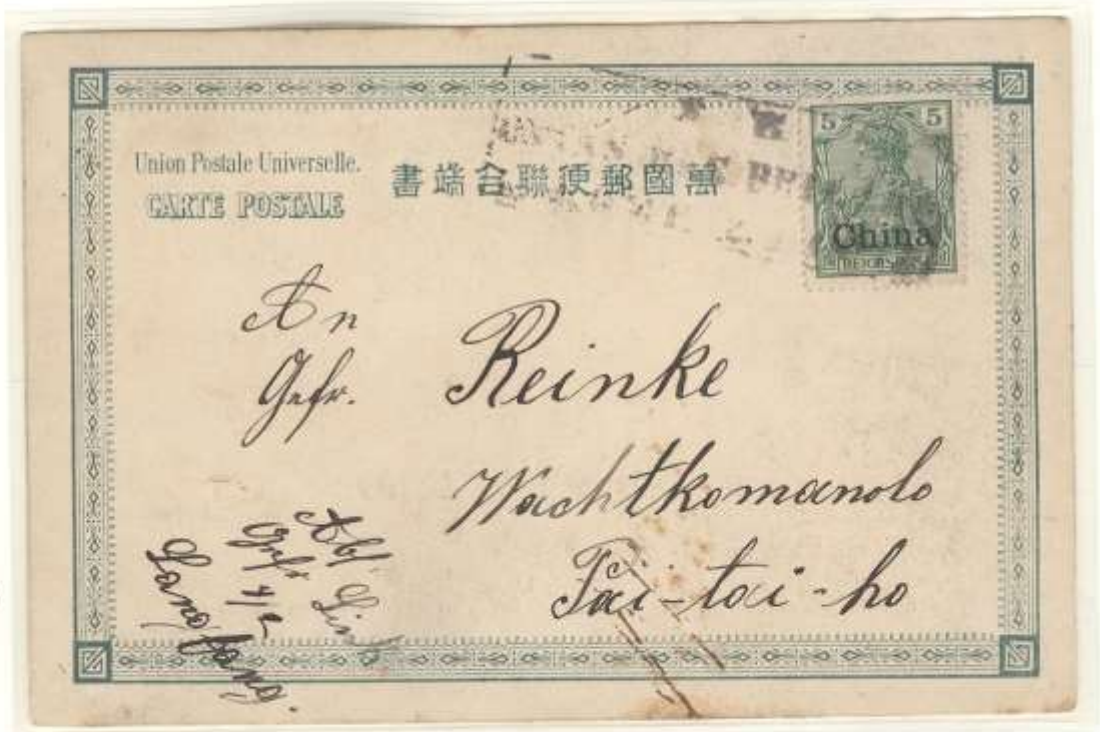 Union Postale Universelle.
CARTE POSTALE
書端合聯便郵國萬
5 5
China
An
Gefr. Reinke
Wachtkomando
Päi-tai-ho
Abs.
Gefr. Link
Lang fang.